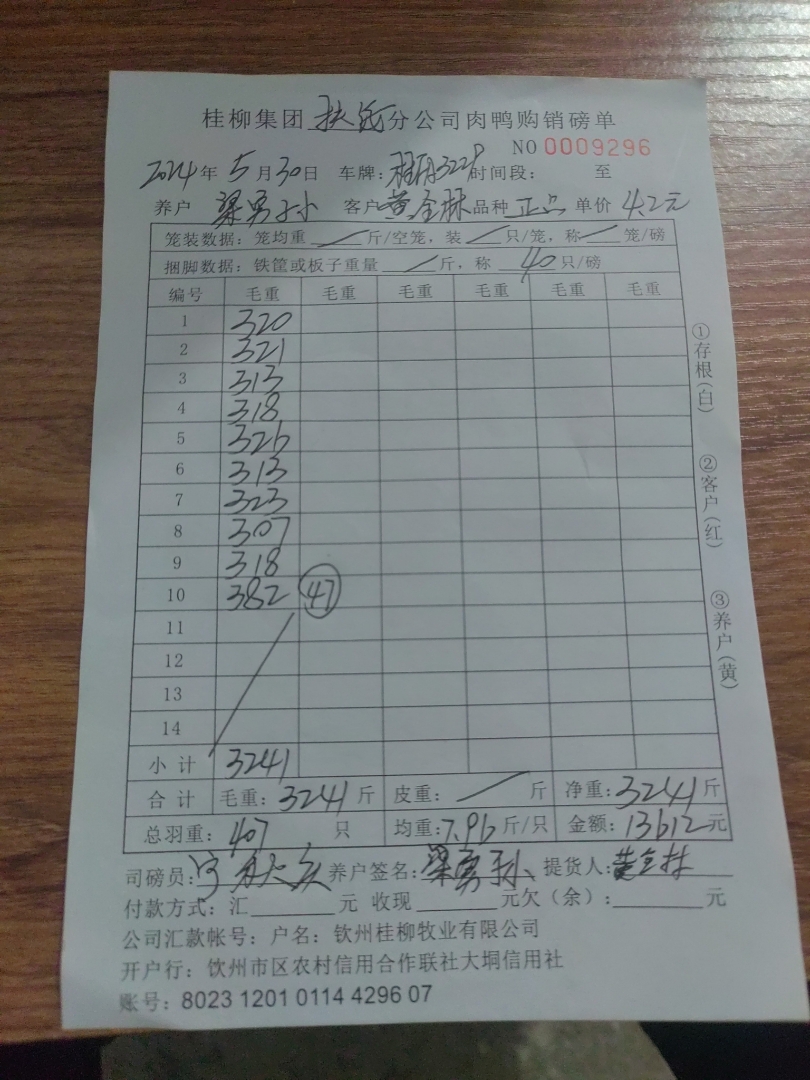 桂柳集团 扶绥 分公司肉鸭购销磅单
NO 0009296
2024年 5月30日 车牌: 3229 时间段: 至
养户 梁勇孙 客户 黄全林 品种 正品 单价 4.2元
笼装数据: 笼均重 / 斤/空笼, 装 / 只/笼, 称 / 笼/磅
捆脚数据: 铁筐或板子重量 / 斤, 称 40 只/磅
编号 毛重 毛重 毛重 毛重 毛重 毛重
1 320
2 321
3 313
4 318
5 326
6 313
7 323
8 307
9 318
10 382 47
11
12
13
14
小计 3241
合计 毛重: 3241 斤 皮重: / 斤 净重: 3241 斤
总羽重: 407 只 均重: 7.96 斤/只 金额: 13612 元
司磅员: 养户签名: 梁勇孙 提货人: 黄全林
付款方式: 汇 元 收现 元欠(余): 元
公司汇款帐号: 户名: 钦州桂柳牧业有限公司
开户行: 饮州市区农村信用合作联社大垌信用社
账号: 8023 1201 0114 4296 07
①存根(白)
②客户(红)
③养户(黄)